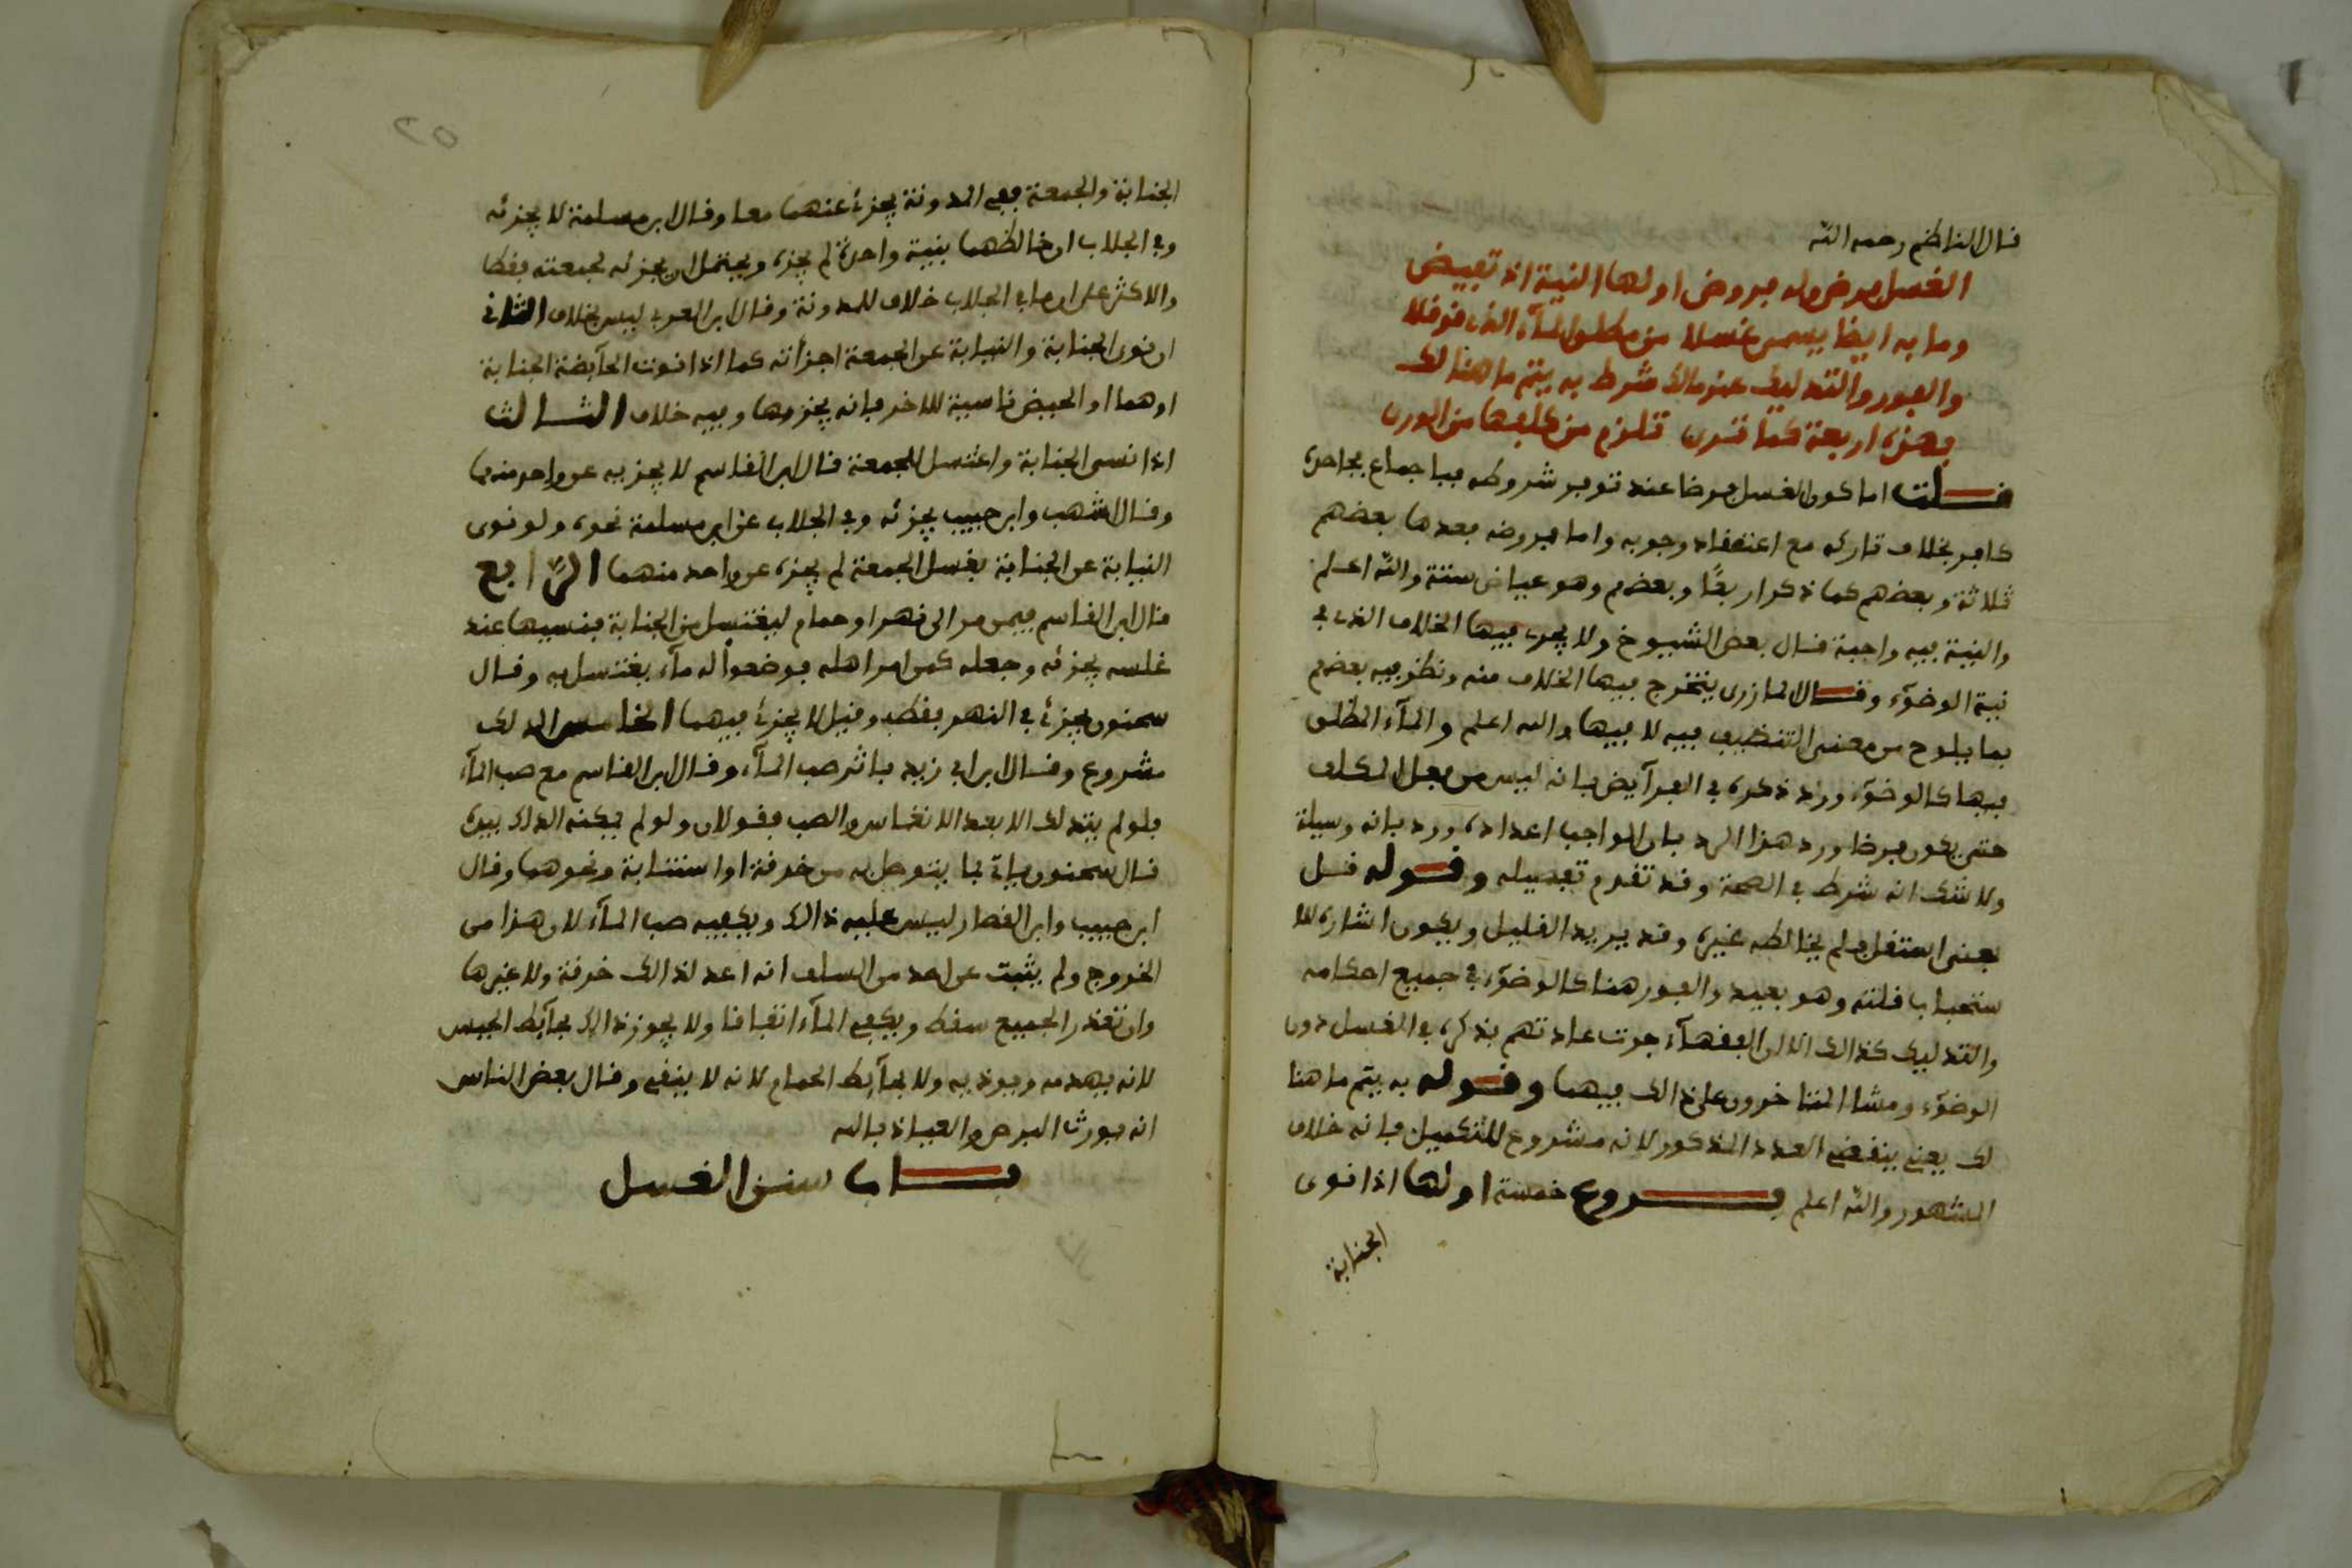 قال الناظم رحمه الله
الغسل فرض وله فروض اولها النية اذ تفيض
وما به ايضا يسمى غسلا من مطلق المآء الذي قد قلا
والفور والتدليك عند مالك شرط به يتم ما هنالك
فهذه اربعة كما ترى تلزم من كلفها من الورى
قلت اما كون الغسل فرضا عند توفر شروطه فباجماع فجاحده
كافر بخلاف تاركه مع اعتقاد وجوبه واما فروضه فعدها بعضهم
ثلاثة وبعضهم كما ذكر اربعًا وبعضهم وهو عياض ستة والله اعلم
والنية فيه واجبة قال بعض الشيوخ ولا يجري فيها الخلاف الذي في
نية الوضوء وقال المازري يتخرج فيها الخلاف منه ونظر فيه بعضهم
بما يلوح من معنى التنظيف فيه لا فيها والله اعلم والمآء المطلق
فيها كالوضوء ورد ذكره في الفرآيض بانه ليس من فعل المكلف
حتى يكون فرضا ورد هذا الرد بان الواجب اعداده ورد بانه وسيلة
ولا شك انه شرط في الصحة وقد تقدم تفصيله وقوله قل
يعني استقل فلم يخالطه غيره وقد يريد القليل ويكون اشارة لا
ستحباب قلته وهو بعيد والفور هنا كالوضوء في جميع احكامه
والتدليك كذالك الا ان الفقهآء جرت عادتهم بذكره في الغسل دون
الوضوء ومشا المتاخرون على ذالك فيهما وقوله به يتم ما هنا
لك يعني ينقضي العدد المذكور لانه مشروع للتكميل فانه خلاف
المشهور والله اعلم فروع خمسة اولها اذا نوى
الجنابة
الجنابة والجمعة ففي المدونة يجزئ عنهما معا وقال ابن مسلمة لا يجزئه
وفي الجلاب ان خالطهما بنية واحدة لم يجزه ويحتمل ان يجزئه لجمعته فقط
والاكثر على ان ما في الجلاب خلاف للمدونة وقال ابن العربي ليس بخلاف الثاني
ان نوى الجنابة والنيابة عن الجمعة اجزأته كما اذا نوت الحآيضة الجنابة
او هما او الحيض ناسية للاخر فانه يجزيها وفيه خلاف الثالث
اذا نسي الجنابة واغتسل للجمعة قال ابن القاسم لا يجزيه عن واحد منهما
وقال اشهب وابن حبيب يجزئه وفي الجلاب عن ابن مسلمة نحوه ولو نوى
النيابة عن الجنابة بغسل الجمعة لم يجزه عن واحد منهما الرابع
قال ابن القاسم فيمن مر الى نهر او حمام ليغتسل من الجنابة فنسيها عند
غلسه يجزئه وجعله كمن امر اهله فوضعوا له مآء يغتسل به وقال
سحنون يجزئ في النهر فقط وقيل لا يجزئ فيهما الخامس الدلك
مشروع وقال ابن ابي زيد باثر صب المآء وقال ابن القاسم مع صب المآء
فلو لم يتدلك الا بعد الانغماس والصب فقولان ولو لم يمكنه الدلك بيده
قال سحنون ياتي بما يتوصل به من خرقة او استنابة ونحوهما وقال
ابن حبيب وابن القصار ليس عليه ذالك ويكفيه صب المآء لان هذا من
الخروج ولم يثبت عن احد من السلف انه اعد لذالك خرقة ولا غيرها
وان تعذر الجميع سقط ويكفي المآء اتفاقا ولا يجوز ذالك بحآيط الحبس
لانه يهدمه ويوذيه ولا بحآيط الحمام لانه لا ينقي وقال بعض الناس
انه يورث البرص والعياذ بالله
باب سنن الغسل